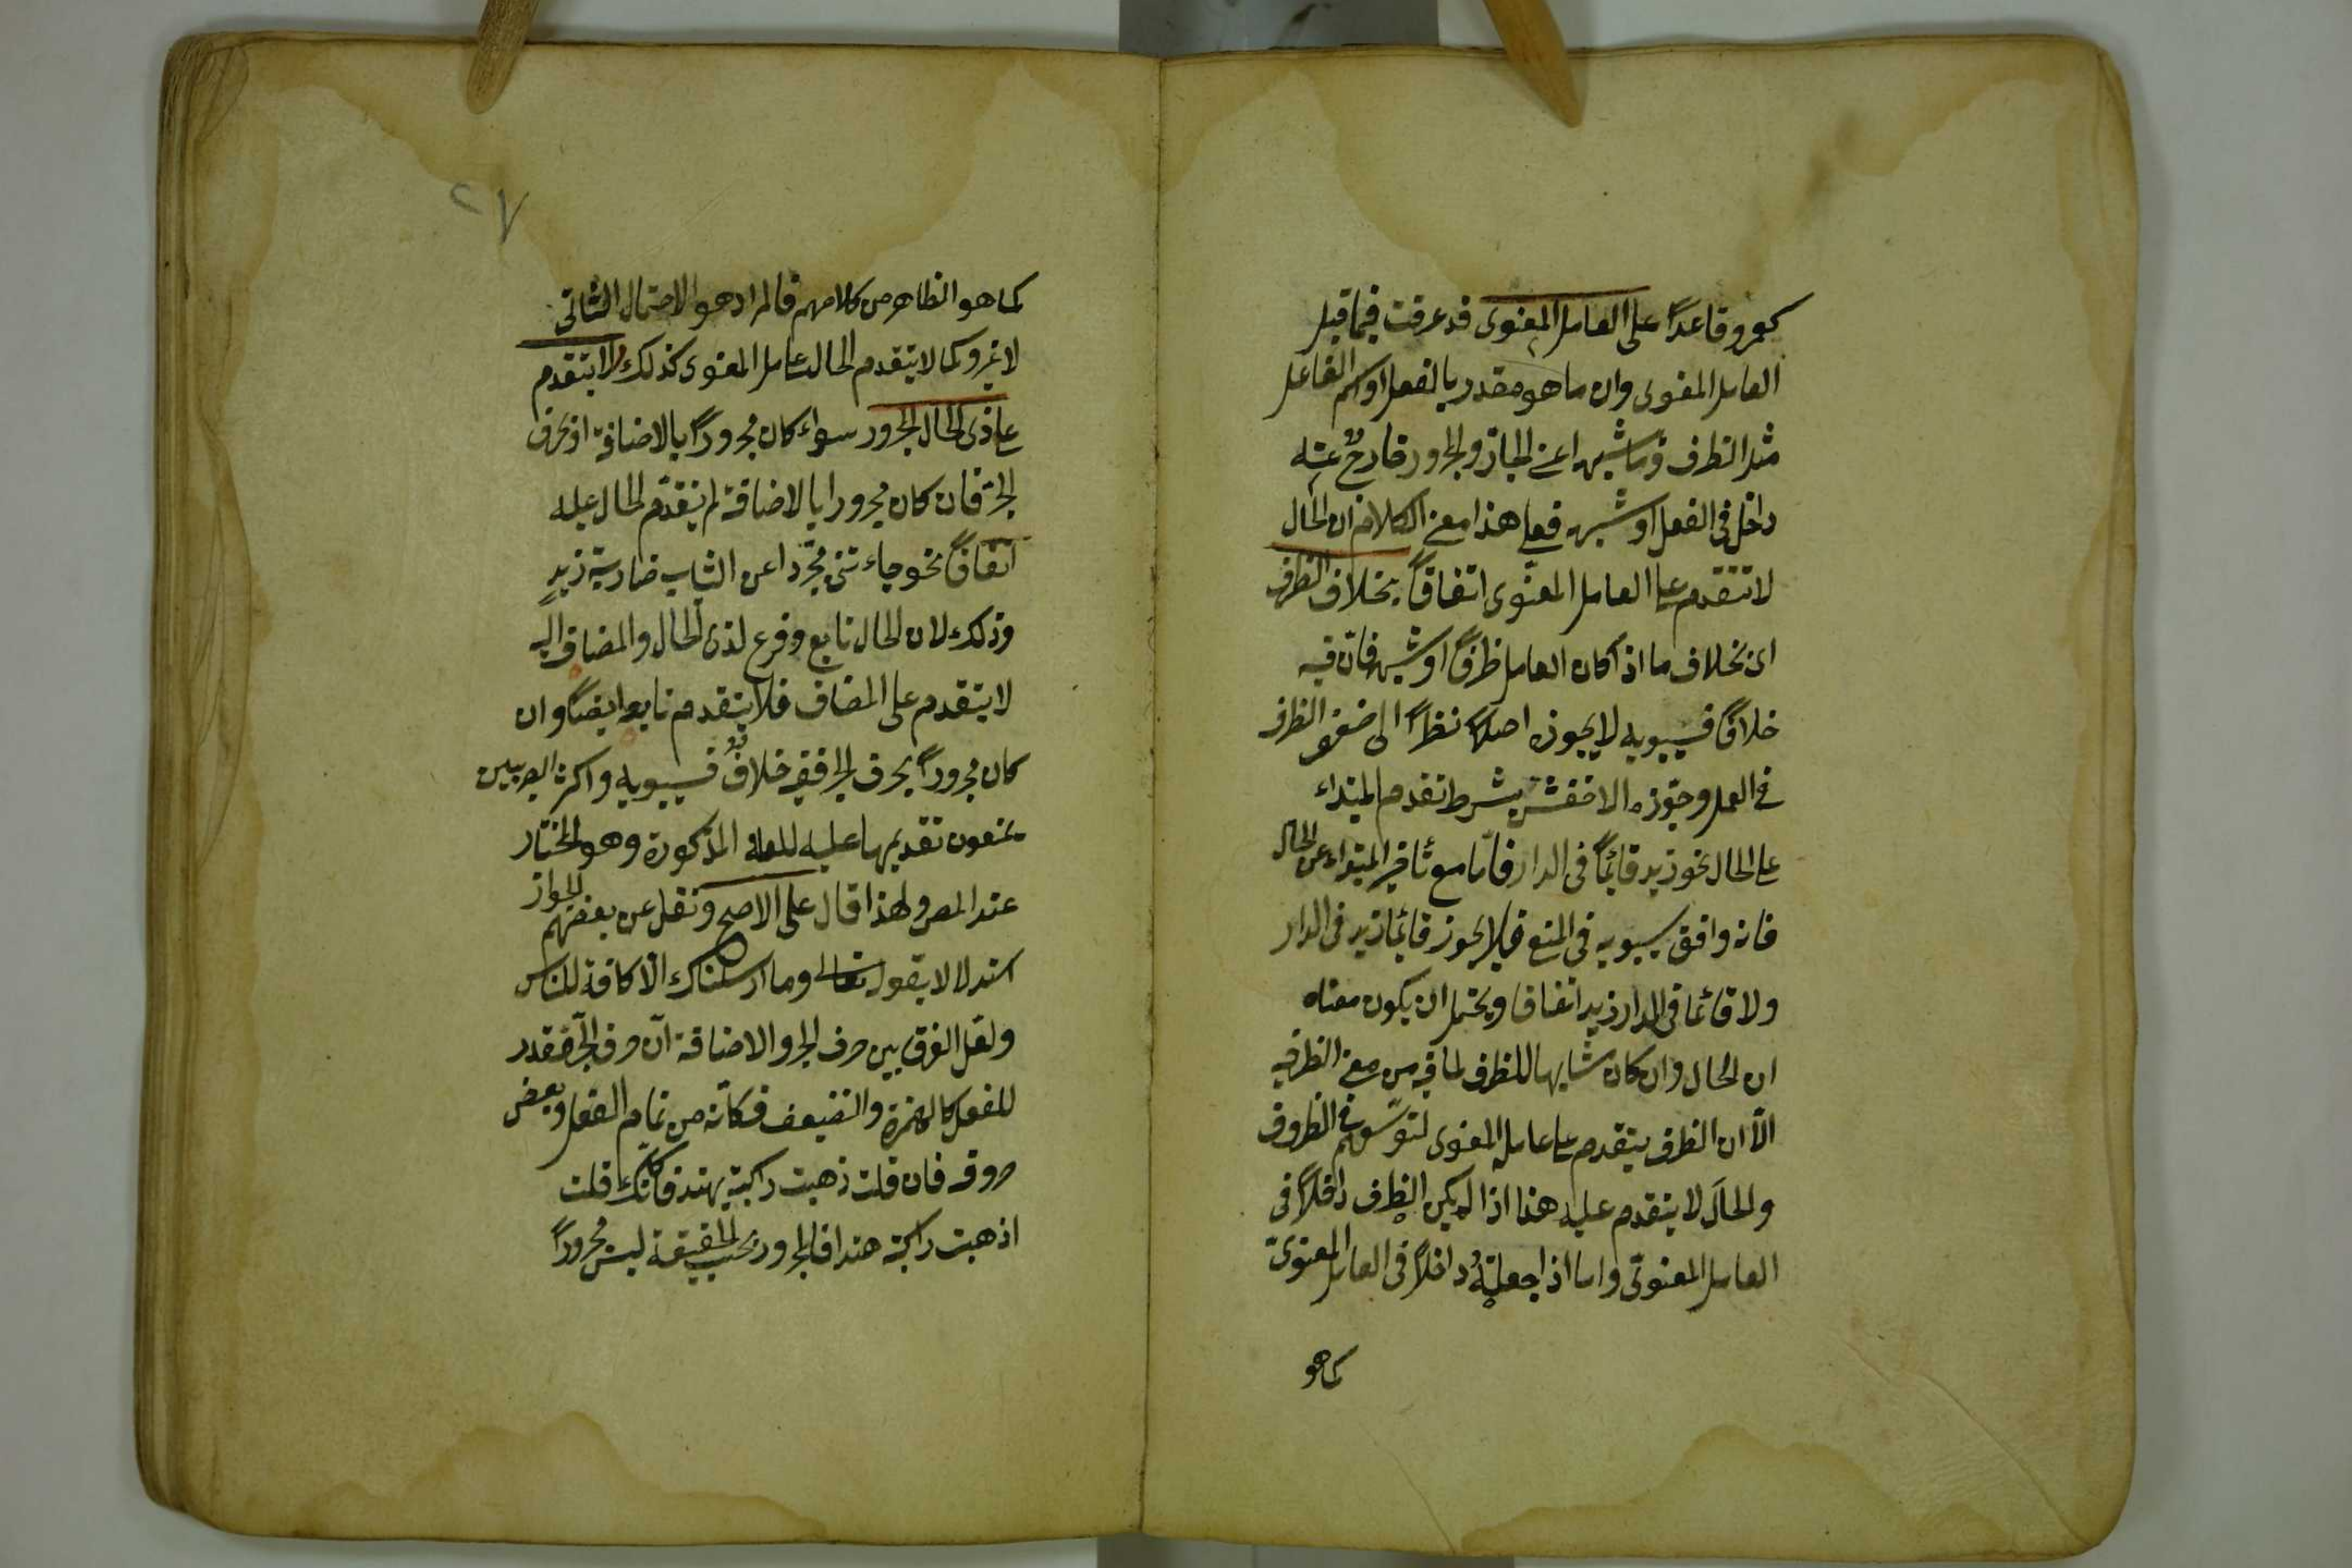 كعمرو قاعدًا على العامل المعنوى قد عرفت فيما قبل
العامل المعنوى وان ما هو مقدر بالفعل او اسم الفاعل
مثل الظرف وما شبهه اعنى الجار والمجرور خارج عنه
داخل فى الفعل او شبهه فعلى هذا معنى الكلام ان الحال
لا تتقدم على العامل المعنوى اتفاقًا بخلاف الظرف
اى بخلاف ما اذا كان العامل ظرفًا او شبهه فان فيه
خلافًا فسيبويه لا يجوزه اصلا نظرًا الى ضعف الظرف
فى العمل وجوّزه الاخفش بشرط تقدم المبتداء
على الحال نحو زيد قائمًا فى الدار فاما مع تأخير المبتداء عن الحال
فانه وافق سيبويه فى المنع فلا يجوز قائما زيد فى الدار
ولا قائما فى الدار زيد اتفاقا ويحتمل ان يكون معناه
ان الحال وان كان مشابها للظرف لما فيه من معنى الظرفية
الّا ان الظرف يتقدم على عامله المعنوى لتوسّعهم فى الظروف
والحال لا يتقدم عليه هذا اذا لم يكن الظرف داخلًا فى
العامل المعنوىّ واما اذا جعلته داخلًا فى العامل المعنوىّ
كما هو
٢٧
كما هو الظاهر من كلامهم فالمراد هو الاحتمال الثانى
لا غير وكما لا يتقدم الحال على عامل المعنوى كذلك لا يتقدم
على ذى الحال المجرور سواء كان مجرورًا بالاضافة او بحرف
الجرّ فان كان مجرورا بالاضافة لم يتقدّم الحال عليه
اتفاقًا نحو جاءتنى مجرّدا عن الثياب ضاربة زيدٍ
وذلك لان الحال تابع وفرع لذى الحال والمضاف اليه
لا يتقدم على المضاف فلا يتقدم تابعه ايضًا وان
كان مجرورًا بحرف الجر ففيه خلافٌ فسيبويه واكثر البصريين
يمنعون تقديمها عليه للعلة المذكورة وهو المختار
عند المص ولهذا قال على الاصح ونقل عن بعضهم الجواز
استدلالا بقوله تعالى وما ارسلناك الّا كافة للناس
ولعّل الفرق بين حرف الجر والاضافة انّ حرف الجرّ مقدر
للفعل كالهمزة والتضعيف فكأنه من تمام الفعل وبعض
حروفه فان قلت ذهبت راكبة بهند فكأنك قلت
اذهبت راكبة هندا فالمجرور بحسب الحقيقة ليس مجرورًا